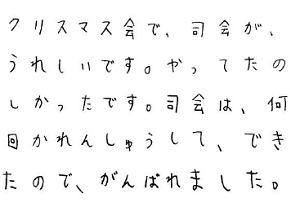 クリスマス会で、司会が、
うれしいです。やってたの
しかったです。司会は、何
回かれんしゅうして、でき
たので、がんばれました。